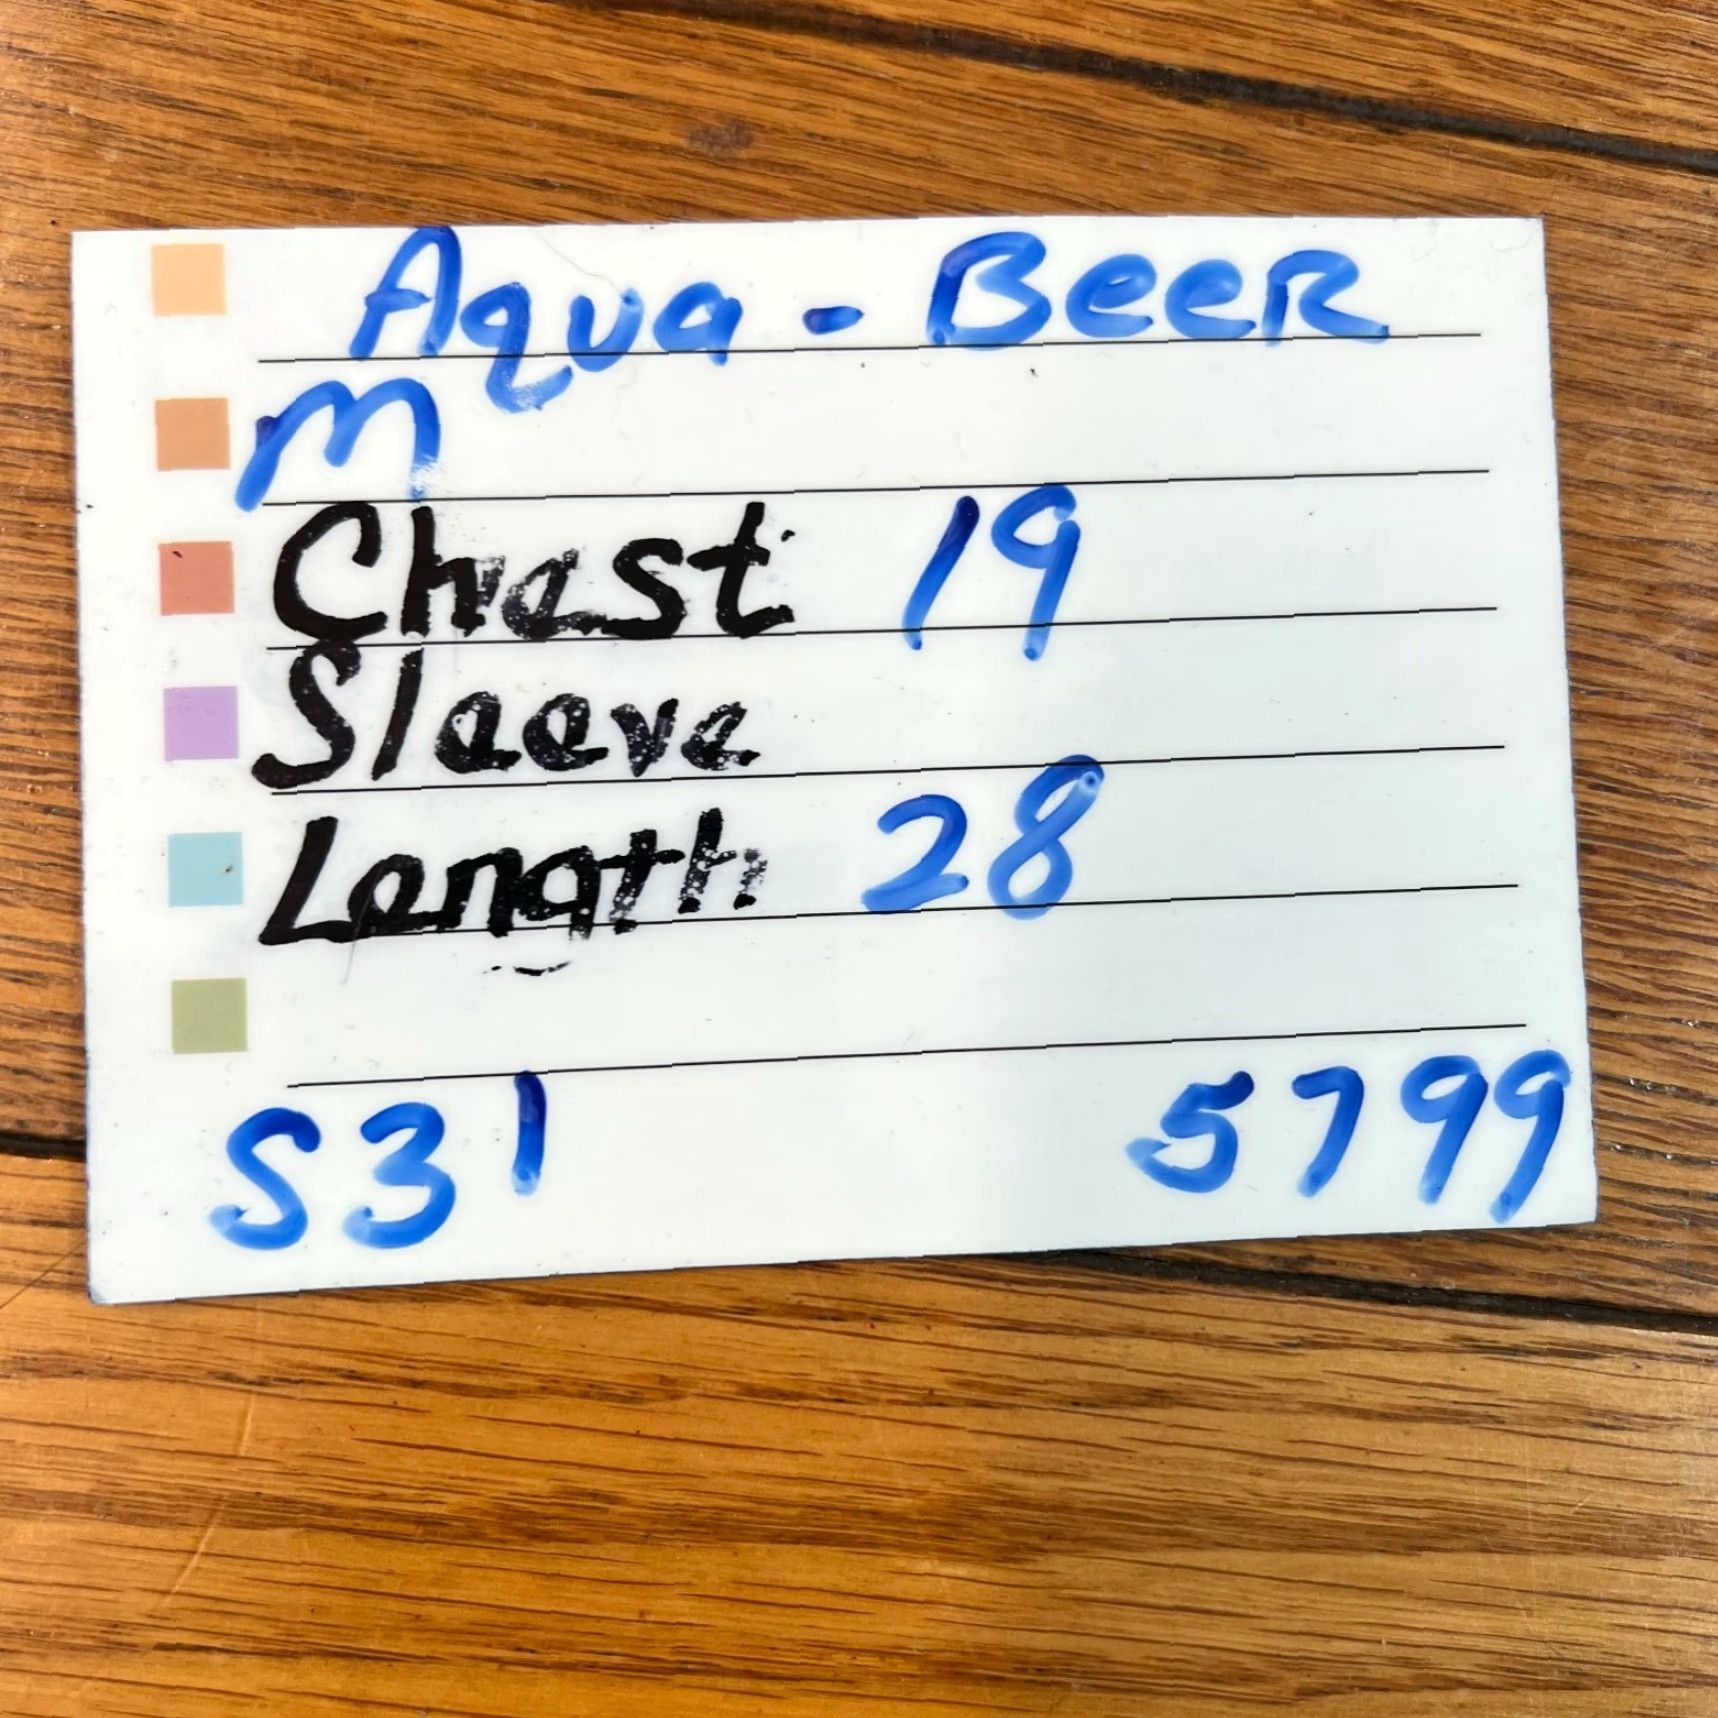 Aqua - BeeR
M
Chest 19
Sleeve
Length 28
S31 5799